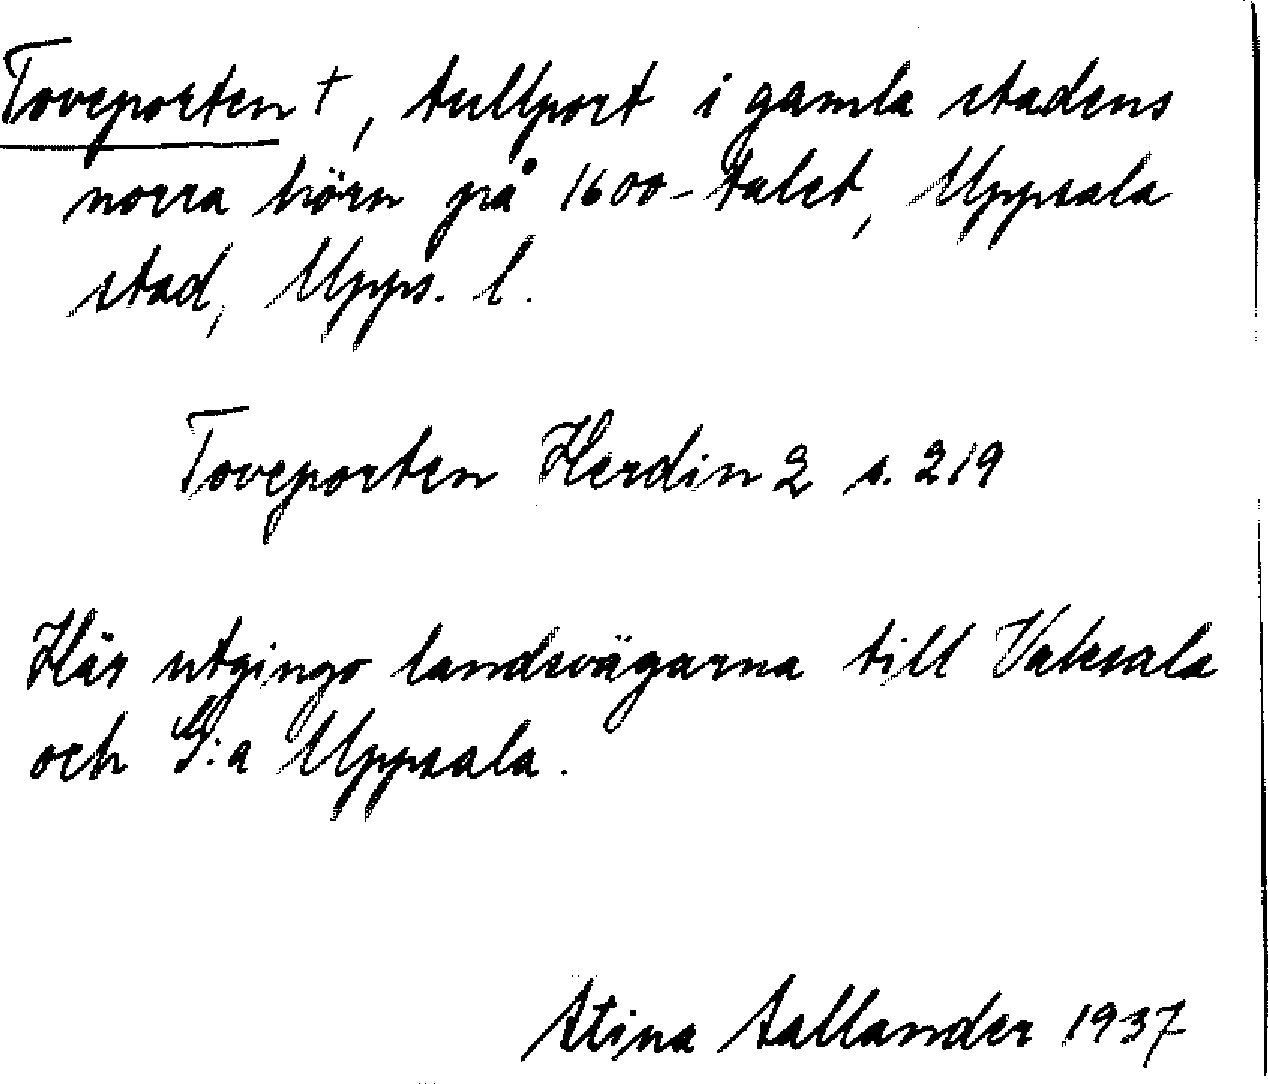 Toveporten †, tullport i gamla stadens
norra hörn på 1600-talet, Uppsala
stad, Upps. l.
Toveporten Herdin 2 s. 219
Här utgingo landsvägarna till Vaksala
och G:a Uppsala.
Stina Sallander 1937